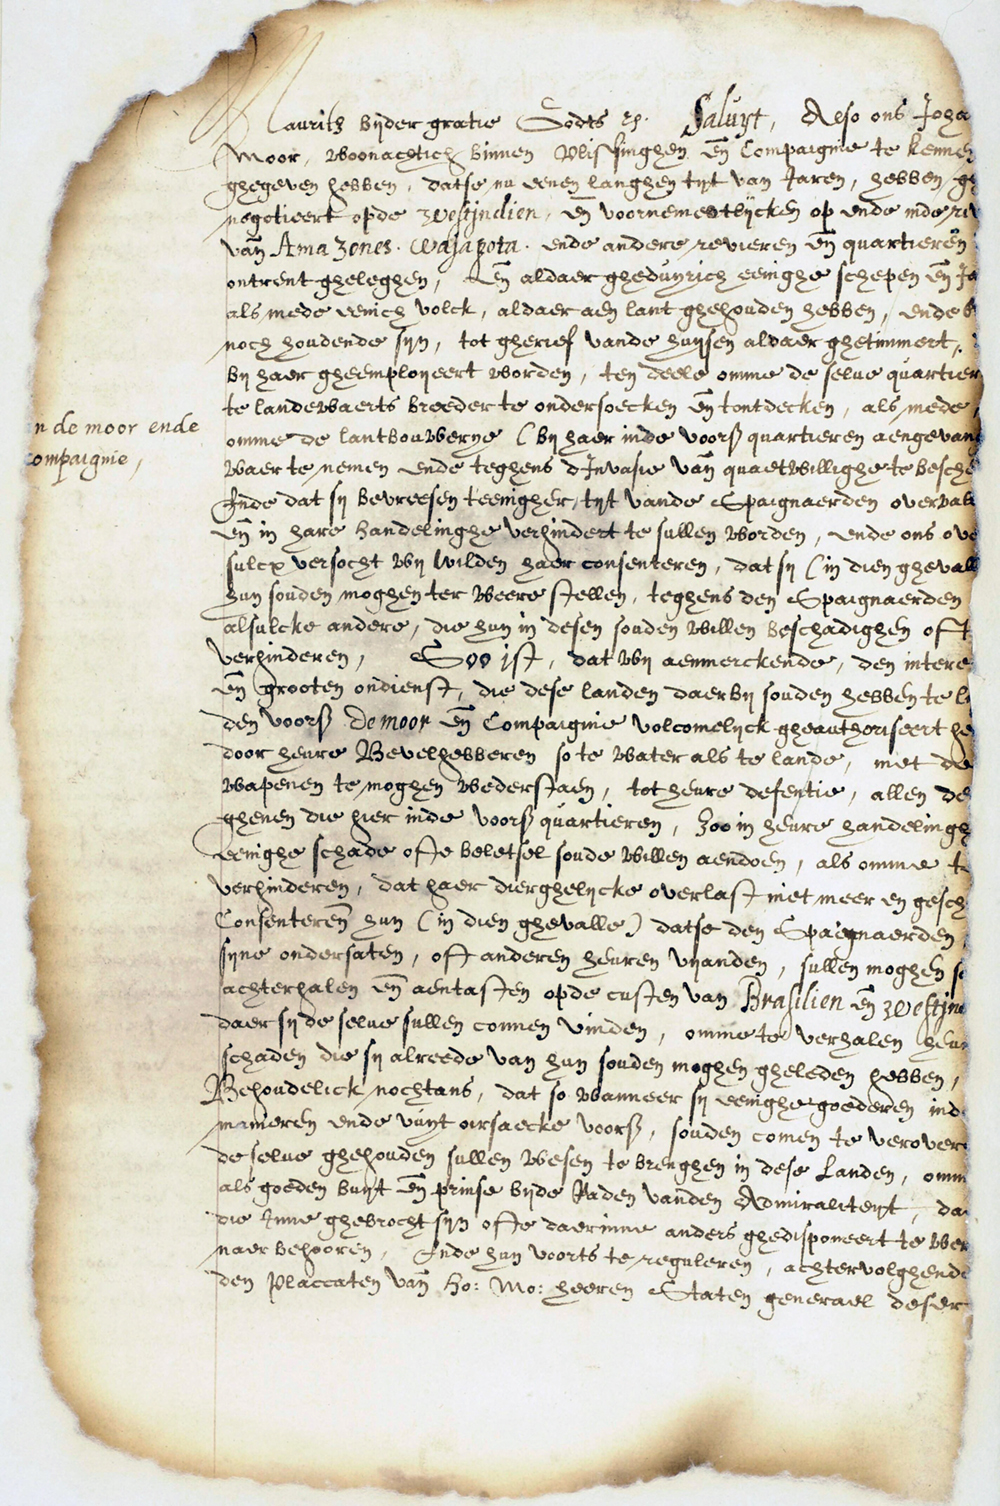 Maurits byder gratie Godts etc. Saluyt, Also ons Joha
Moor, woonachtich binnen Vlissinghen en Compaignie te kennen
ghegeven hebben, datse nu eenen langhen tyt van Jaren, hebben ge
negotieert opde Westjndien, en voornementlycken op ende inde ri
van Amazones. Wajapota. ende andere revieren en quartieren
ontrent gheleghen, en aldaer ghedurich eenighe schepen en Ja
als mede eenich volck, aldaer aen lant ghehouden hebben, ende
noch houdende syn, tot gherief vande huysen aldaer ghetimmert,
by haer gheemployeert worden, ten deele omme de selve quartier
te landewaerts breeder te ondersoecken en tontdecken, als mede
n de moor ende
ompaignie,
omme de lantbouwerye (by haer inde voors quartieren aengevang
waer te nemen ende teghens dInvasie van quaetwillighe te besche
Ende dat sy bevreesen teenigher tyt vande Spaignaerden overvall
en in hare handelinghe verhindert te sullen worden, ende ons ove
sulcx versocht wy wilden haer consenteren, dat sy (in dien ghevall
hun souden moghen ter weere stellen, teghens den Spaignaerden
alsulcke andere, die hun in desen souden willen beschadighen oft
verhinderen, Soo ist, dat wy aenmerckende, den intere
en grooten ondienst, die dese landen daerby souden hebben te l
den voors de moor en Compaignie volcomelyck gheauthoriseert he
door heure Bevelhebberen so te water als te lande, met de
wapenen te moghen wederstaen, tot heure defentie, allen de
ghenen die hier inde voors quartieren, zoo in heure handelingh
eenighe schade ofte beletsel soude willen aendoen, als omme te
verhinderen, dat haer dierghelycke overlast niet meer en gesch
Consenteren hun (in dien ghevalle) datse den Spaegnaerden
syne ondersaten, oft anderen heuren vyanden, sullen moghen s
achterhalen en aentasten opde custen van Brasilien en Westjn
daer sy de selve sullen connen vinden, omme te verhalen heur
schaden die sy alreede van hun souden moghen gheleden hebben,
Behoudelick nochtans, dat so wanneer sy eenighe goederen ind
manieren ende vuyt oirsaecke voors, souden comen te verover
de selve ghehouden sullen wesen te brenghen in dese Landen, omm
als goeden buyt en prinse byde Raden vanden Admiraliteyt, da
die Inne ghebrocht syn ofte daerinne anders ghedisponeert te wer
naer behooren, Ende hun voorts te reguleren, achtervolghende
den Placcaten van Ho: Mo: heeren Staten generael deser